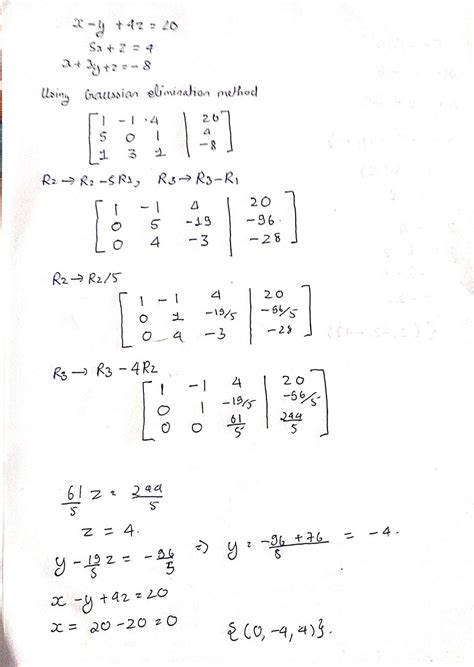 x - y + 4z = 20
5x + z = 4
x + 3y + z = -8
Using Gaussian elimination method
[ 1 -1 4 | 20 ]
[ 5 0 1 | 4 ]
[ 1 3 1 | -8 ]
R2 → R2 - 5R1, R3 → R3 - R1
[ 1 -1 4 | 20 ]
[ 0 5 -19 | -96 ]
[ 0 4 -3 | -28 ]
R2 → R2/5
[ 1 -1 4 | 20 ]
[ 0 1 -19/5 | -96/5 ]
[ 0 4 -3 | -28 ]
R3 → R3 - 4R2
[ 1 -1 4 | 20 ]
[ 0 1 -19/5 | -96/5 ]
[ 0 0 61/5 | 244/5 ]
61/5 z = 244/5
z = 4.
y - 19/5 z = -96/5 ⇒ y = (-96 + 76)/5 = -4.
x - y + 4z = 20
x = 20 - 20 = 0 {(0, -4, 4)}.